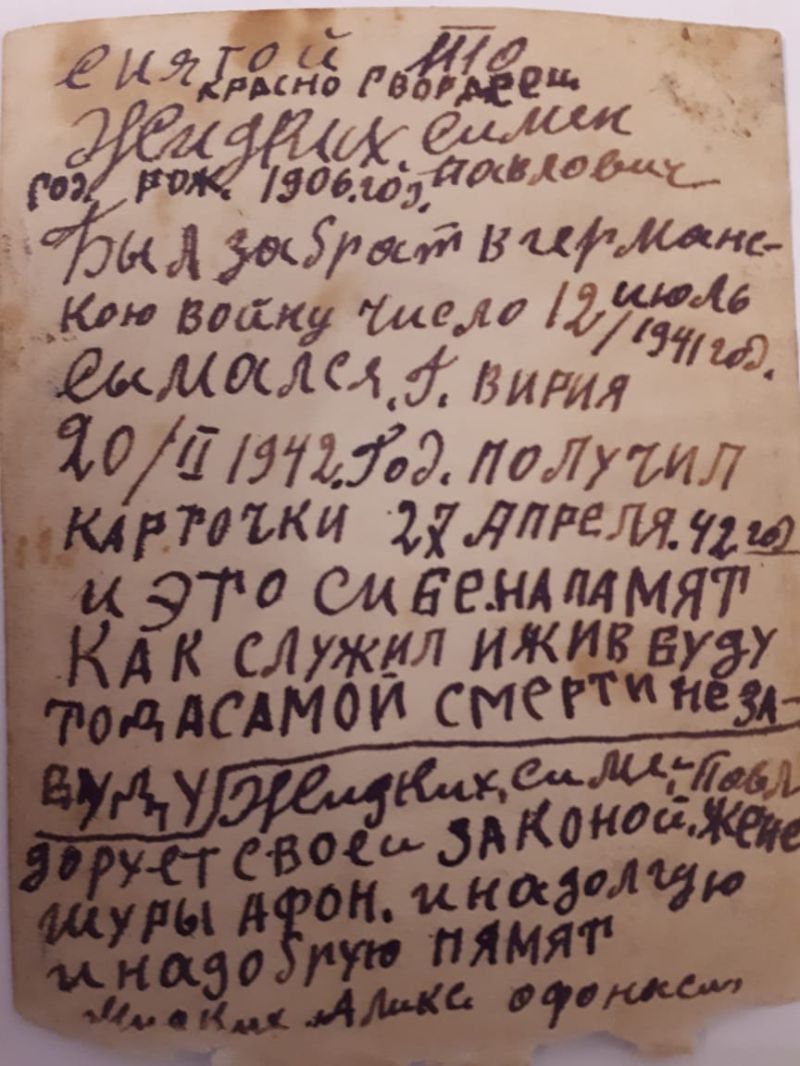 снятой
КРАСНО
Жидких. Симен
год. рож. 1906.год. Павлович
Был забрат в германс-
кою войну число 12 июль
/1941 год.
сымался. Г. ВИРИЯ
20/II 1942. Год. ПОЛУЧИЛ
КАРТОЧКИ 27 АПРЕЛЯ. 42 год
и ЭТО СИБЕ. НА ПАМЯТ
КАК СЛУЖИЛ ИЖИВ БУДУ
ТОДАСАМОЙ СМЕРТИ НЕ ЗА-
БУДУ Жидких, симе- Павл
дорует своеи ЗАКОНОЙ. ЖЕНЕ
ШУРЫ АФОН. и надолгую
и надобрую ПАМЯТ